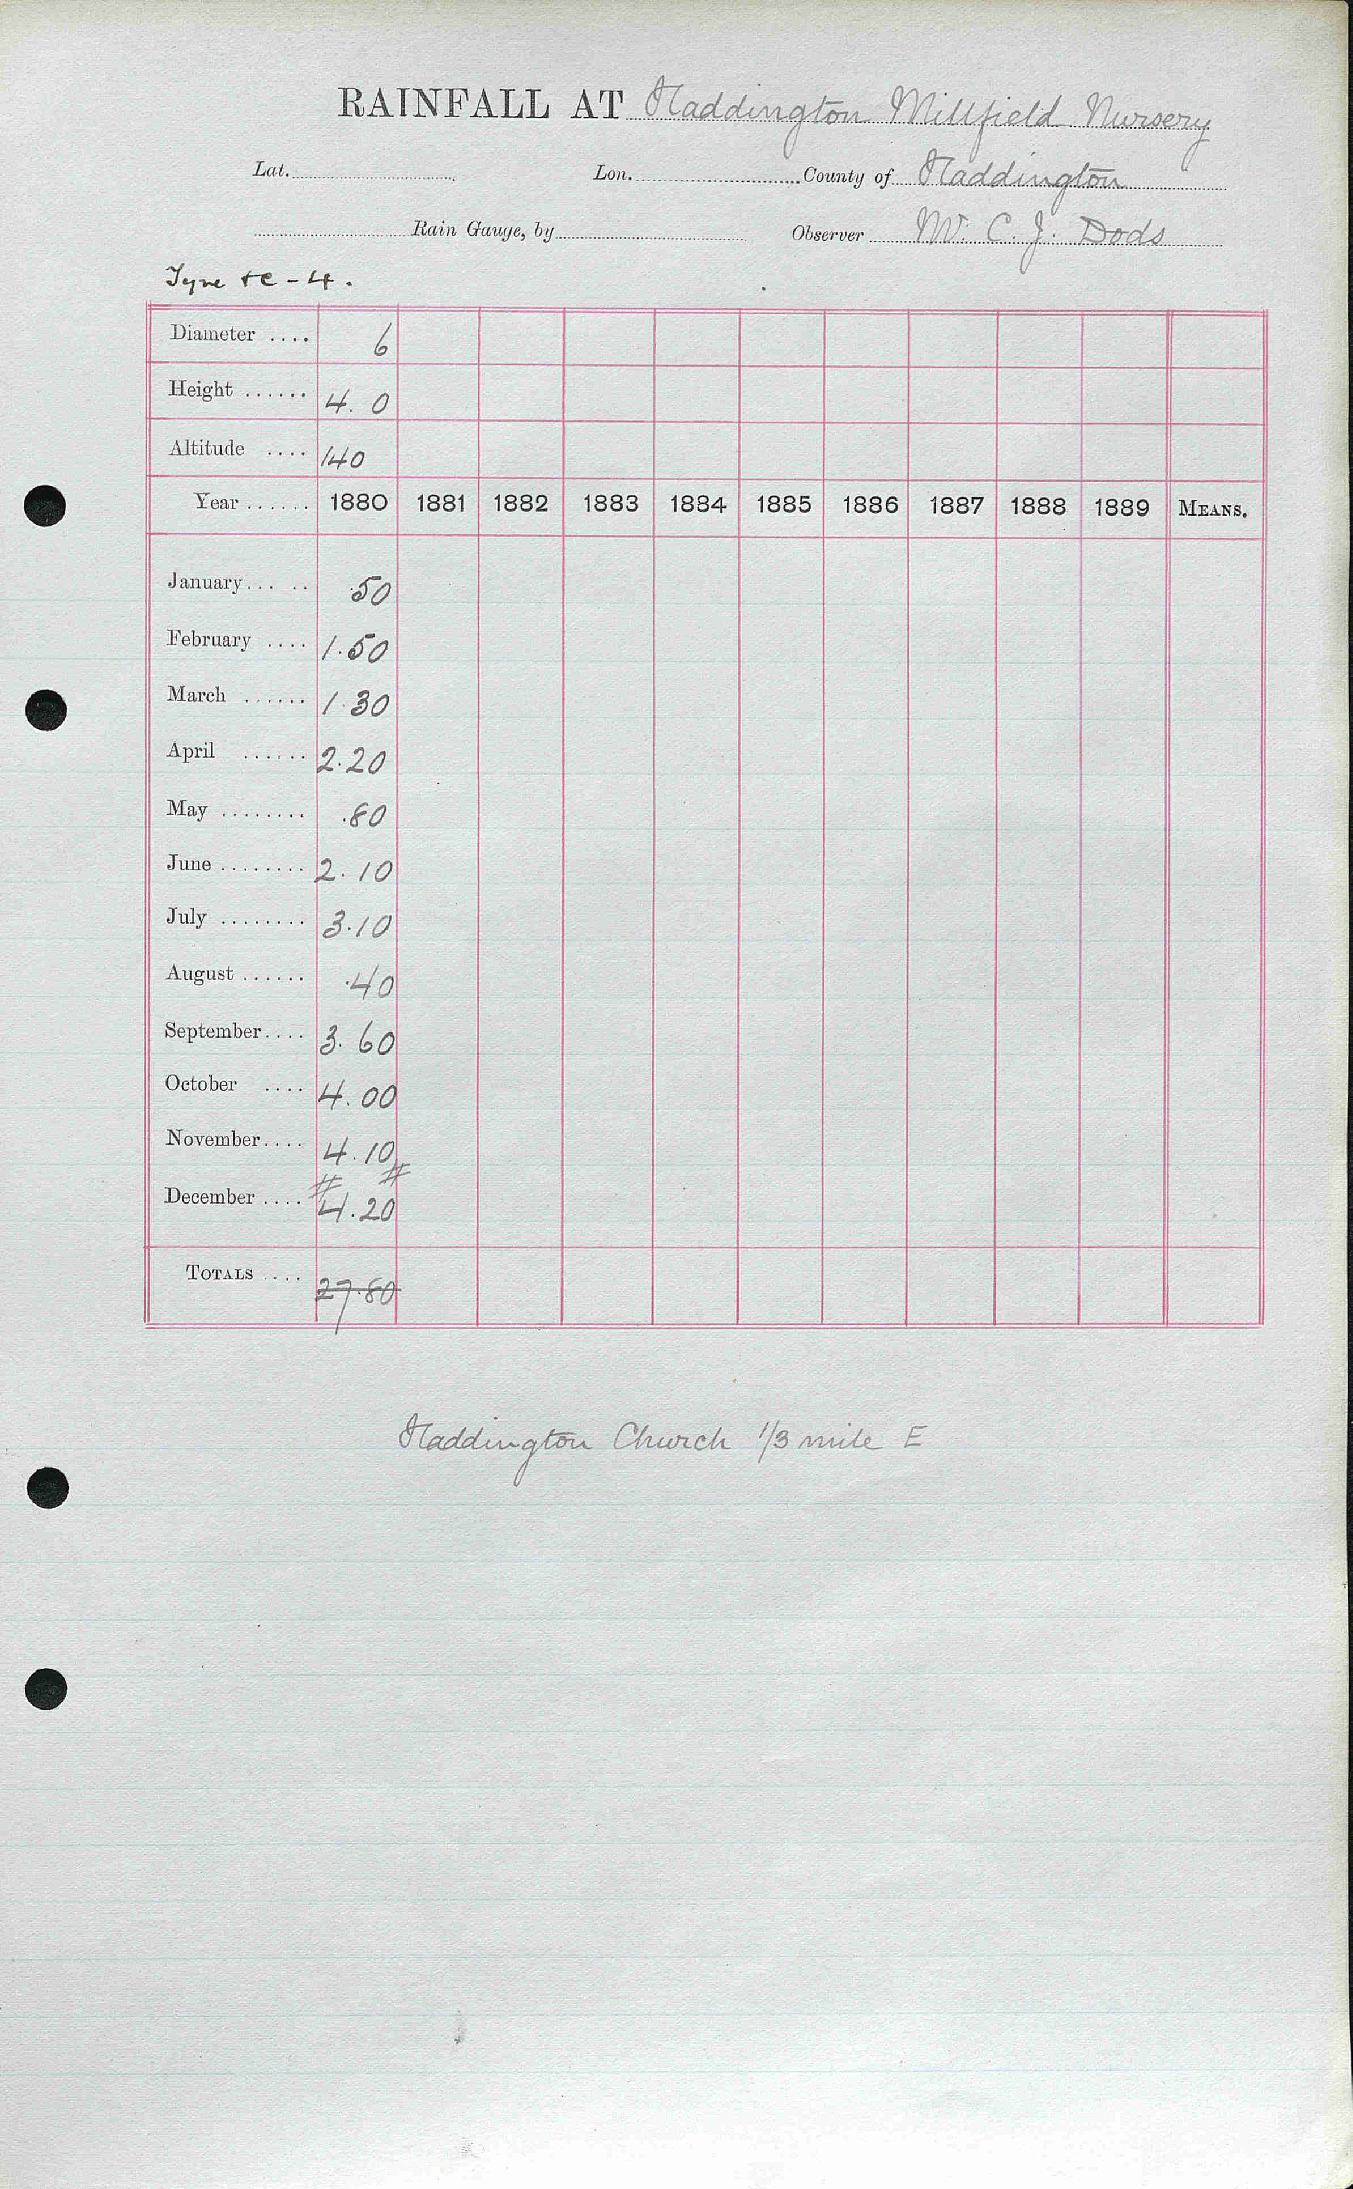 RAINFALL AT Haddington Millfield Nursery
Lat. Lon. County of Haddington
Rain Gauge, by Observer W. C. J. Dods
Tyne &c - 4.
Diameter .... 6
Height ...... 4. 0
Altitude .... 140
Year ...... 1880 1881 1882 1883 1884 1885 1886 1887 1888 1889 MEANS.
January... .. .50
February .... 1.50
March ...... 1.30
April ...... 2.20
May ........ .80
June ........ 2.10
July ........ 3.10
August ...... .40
September.... 3.60
October .... 4.00
November.... 4.10
# #
December .... 4.20
TOTALS .... 27.80
Haddington Church 1/3 mile E